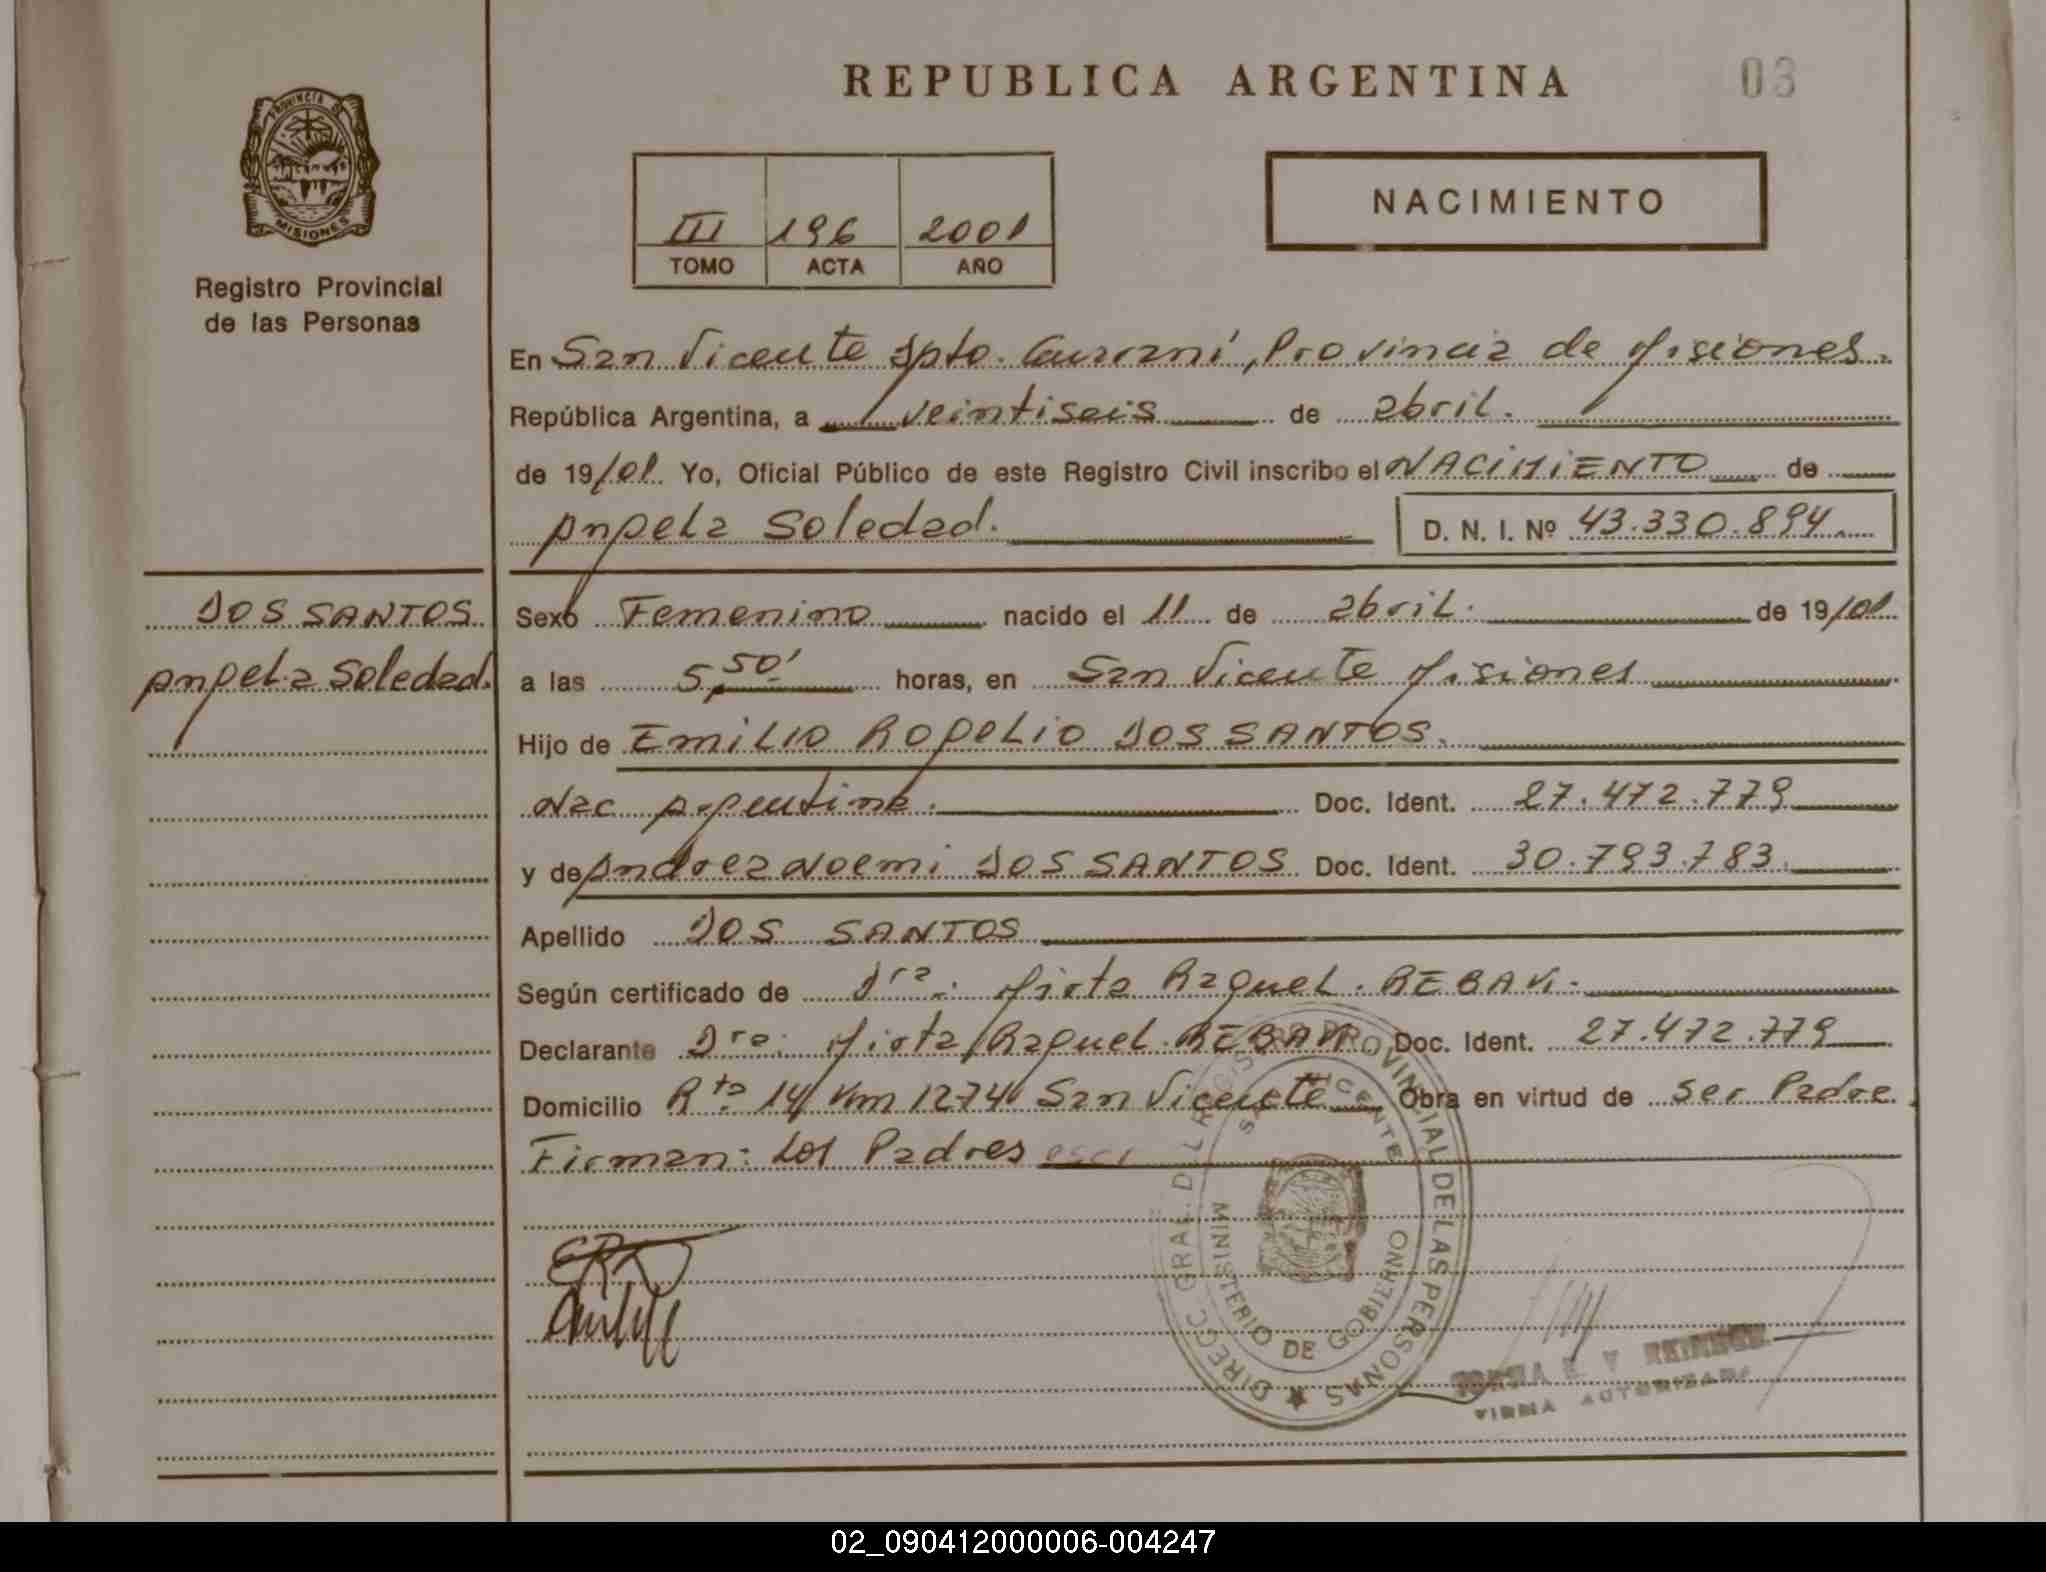 REPUBLICA ARGENTINA
03
PROVINCIA DE
MISIONES
Registro Provincial
de las Personas
III 196 2001
TOMO ACTA AÑO
NACIMIENTO
En San Vicente Dpto. Guaraní, Provincia de Misiones.
República Argentina, a veintiseis de abril.
de 19/01. Yo, Oficial Público de este Registro Civil inscribo el NACIMIENTO de
Angela Soledad. D. N. I. Nº 43.330.894
DOS SANTOS
Angela Soledad.
Sexo Femenino nacido el 11 de abril. de 19/01.
a las 5,50' horas, en San Vicente Misiones
Hijo de EMILIO ROGELIO DOS SANTOS.
Nac Argentina. Doc. Ident. 27.472.779
y de Andrea Noemi DOS SANTOS Doc. Ident. 30.793.783.
Apellido DOS SANTOS
Según certificado de Dra. Mirta Raquel.
Declarante Dra. Mirta Raquel. Doc. Ident. 27.472.779
Domicilio Rta 14 Km 1274 San Vicente Obra en virtud de ser Padre.
Firman: Los Padres
DIRECC GRAL. DEL REGISTRO PROVINCIAL DE LAS PERSONAS
SAN VICENTE
MINISTERIO DE GOBIERNO
FIRMA AUTORIZADA
02_090412000006-004247